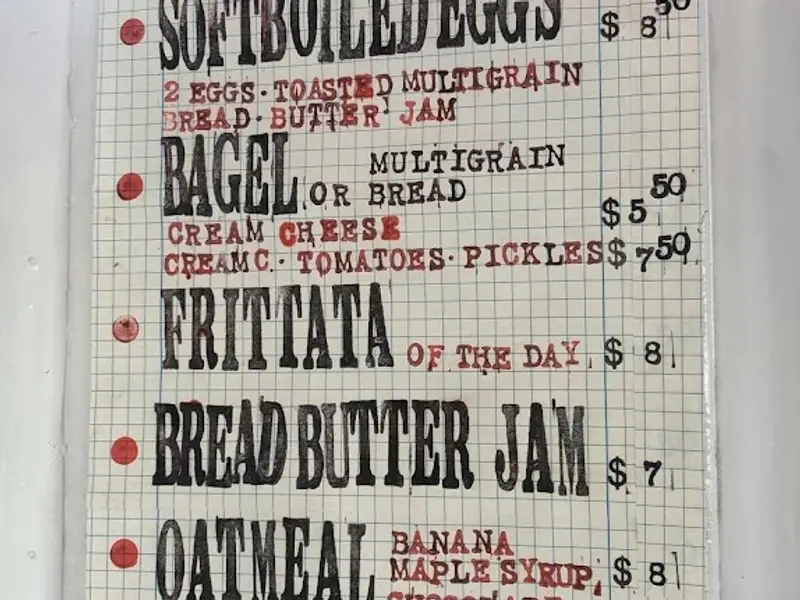 SOFTBOILED EGGS $ 8 50
2 EGGS · TOASTED MULTIGRAIN
BREAD · BUTTER · JAM
BAGEL OR MULTIGRAIN BREAD
CREAM CHEESE $ 5 50
CREAM C. · TOMATOES · PICKLES $ 7 50
FRITTATA OF THE DAY $ 8
BREAD BUTTER JAM $ 7
OATMEAL BANANA
MAPLE SYRUP, $ 8